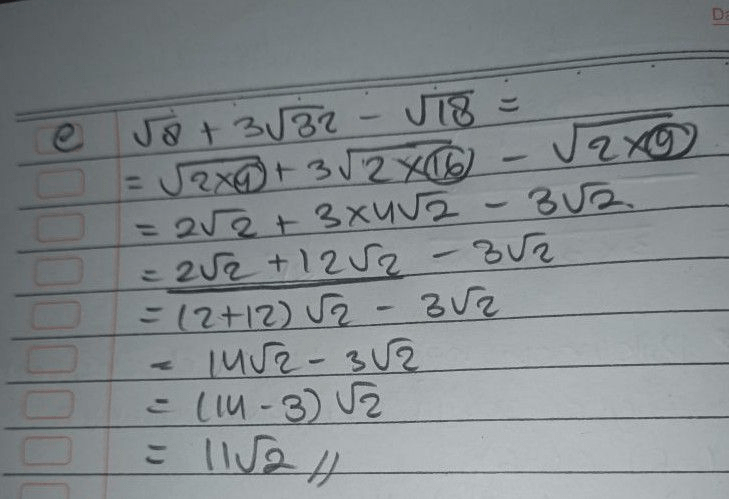 Da
e √8 + 3√32 - √18 =
= √2×4 + 3√2×16 - √2×9
= 2√2 + 3×4√2 - 3√2.
= 2√2 + 12√2 - 3√2
= (2+12)√2 - 3√2
= 14√2 - 3√2
= (14 - 3)√2
= 11√2 //